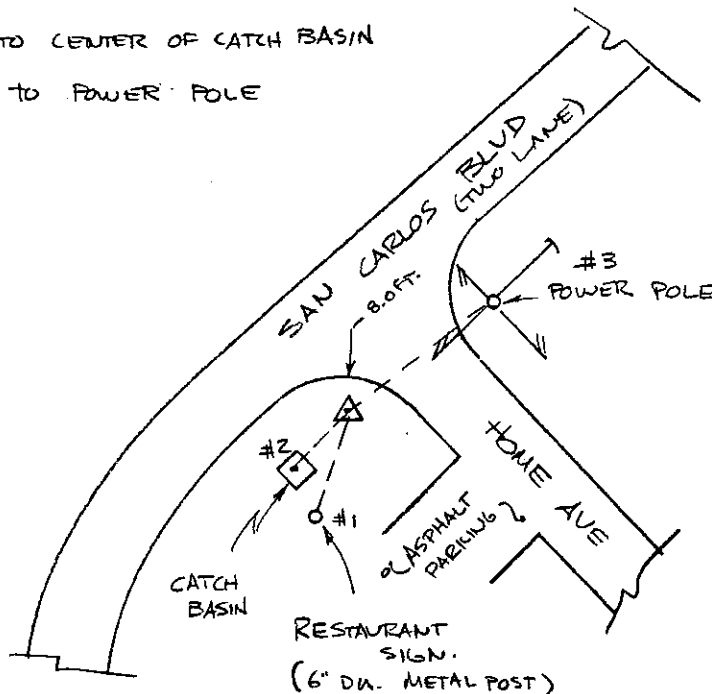 TO CENTER OF CATCH BASIN
TO POWER POLE
SAN CARLOS BLVD
(TWO LANE)
8.0 FT.
#3
POWER POLE
#2
#1
HOME AVE
ASPHALT
PARKING
CATCH
BASIN
RESTAURANT
SIGN.
(6" DIA. METAL POST)